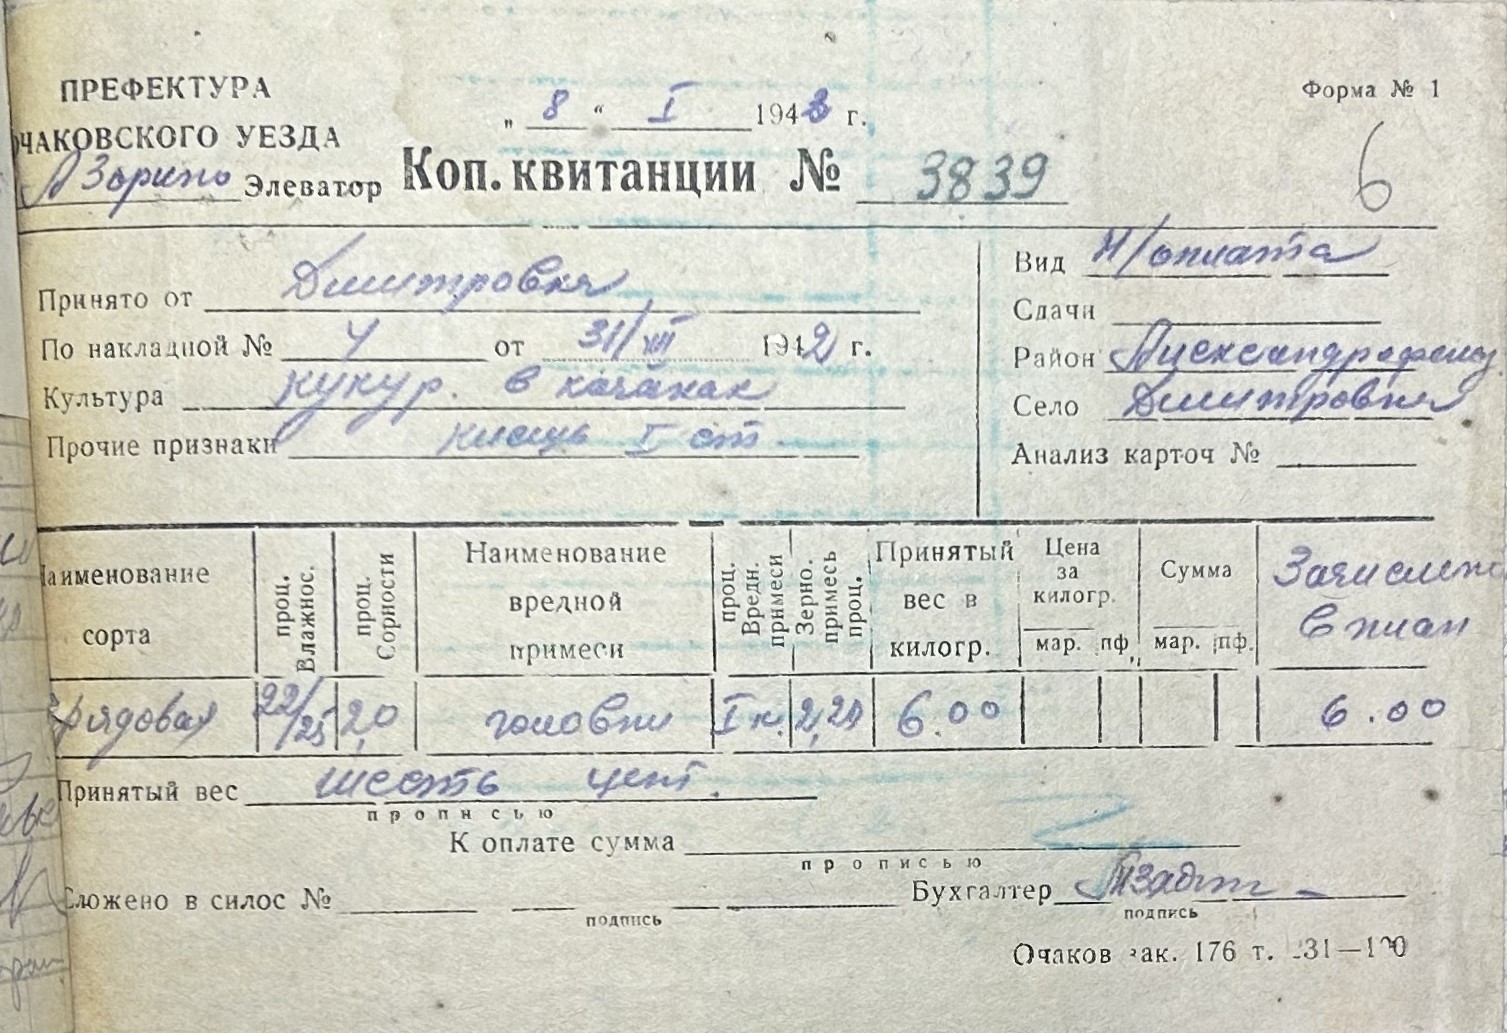 ПРЕФЕКТУРА
ОЧАКОВСКОГО УЕЗДА
Элеватор
„ 8 “ I 1943 г.
Коп. квитанции № 3839
Форма № 1
6
Принято от Дмитровка
По накладной № 4 от 31/XII 1942 г.
Культура кукур. в качанах
Прочие признаки кислць I ст.
Вид Н/оплата
Сдачи
Район Александрфельд
Село Дмитровка
Анализ карточ №
Наименование сорта
проц. Влажнос.
проц. Сорности
Наименование вредной примеси
проц. Вредн. примеси
Зерно. примесь проц.
Принятый вес в килогр.
Цена за килогр.
мар. пф.
Сумма
мар. пф.
Зачислено
в план
рядовая 22/25 2,0 головни I к. 2,20 6.00 6.00
Принятый вес шесть цент.
прописью
К оплате сумма
прописью
Сложено в силос №
подпись
Бухгалтер
подпись
Очаков зак. 176 т. 31—100